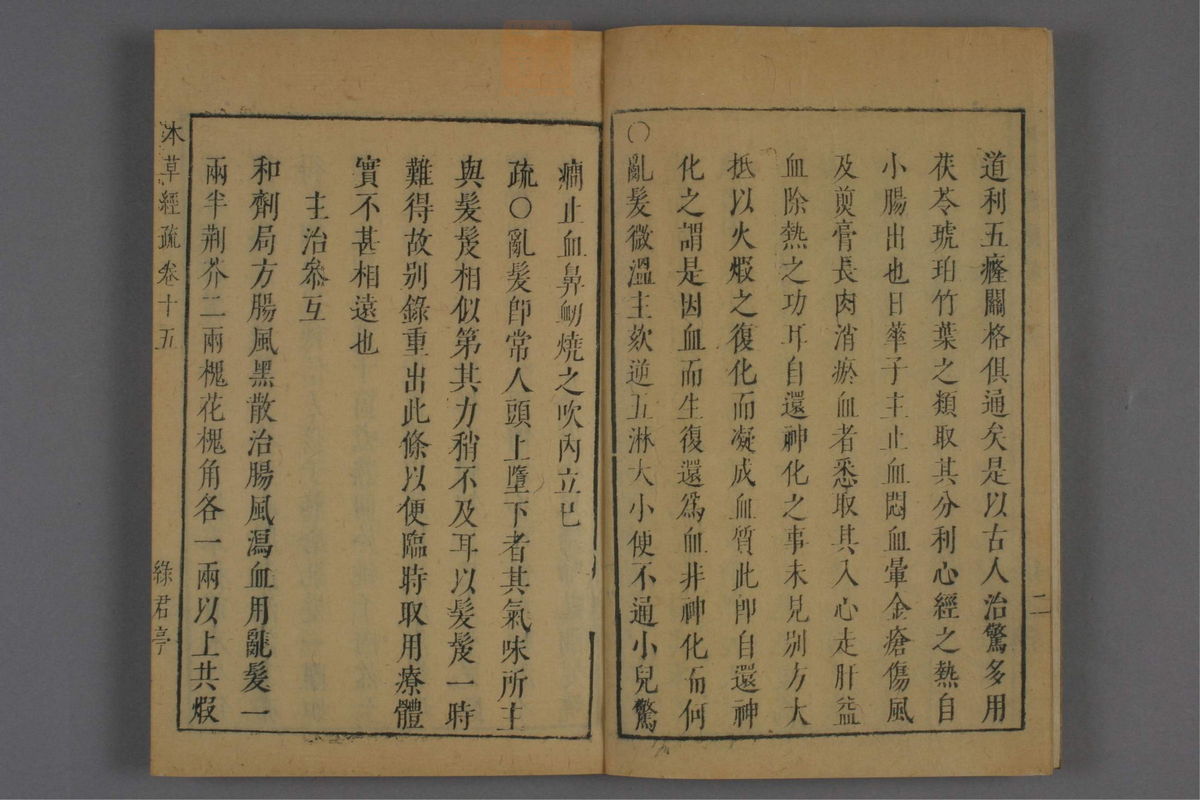 道利五癃關格俱通矣是以古人治驚多用
茯苓琥珀竹葉之類取其分利心經之熱自
小腸出也日華子主止血悶血暈金瘡傷風
及煎膏長肉消瘀血者悉取其入心走肝益
血除熱之功耳自還神化之事未見别方大
抵以火煅之復化而凝成血質此卽自還神
化之謂是因血而生復還爲血非神化而何
〇亂髮微溫主欬逆五淋大小便不通小兒驚
二
癎止血鼻衂燒之吹內立已
疏〇亂髮卽常人頭上墮下者其氣味所主
與髮髲相似第其力稍不及耳以髮髲一時
難得故别錄重出此條以便臨時取用療體
實不甚相遠也
主治叅互
和劑局方腸風黑散治腸風瀉血用亂髮一
兩半荆芥二兩槐花槐角各一兩以上共煅
本草經疏卷十五
綠君亭